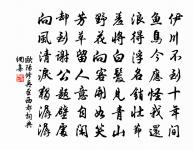 伊川不到十年間
魚鳥今應怪我還
浪得浮名銷壯節
羞將白髮見青山
野花向客開如笑
芳草留人意自閒
却到謝公題壁處
向風清淚獨潺潺
歐陽修再至西都詞典
網集